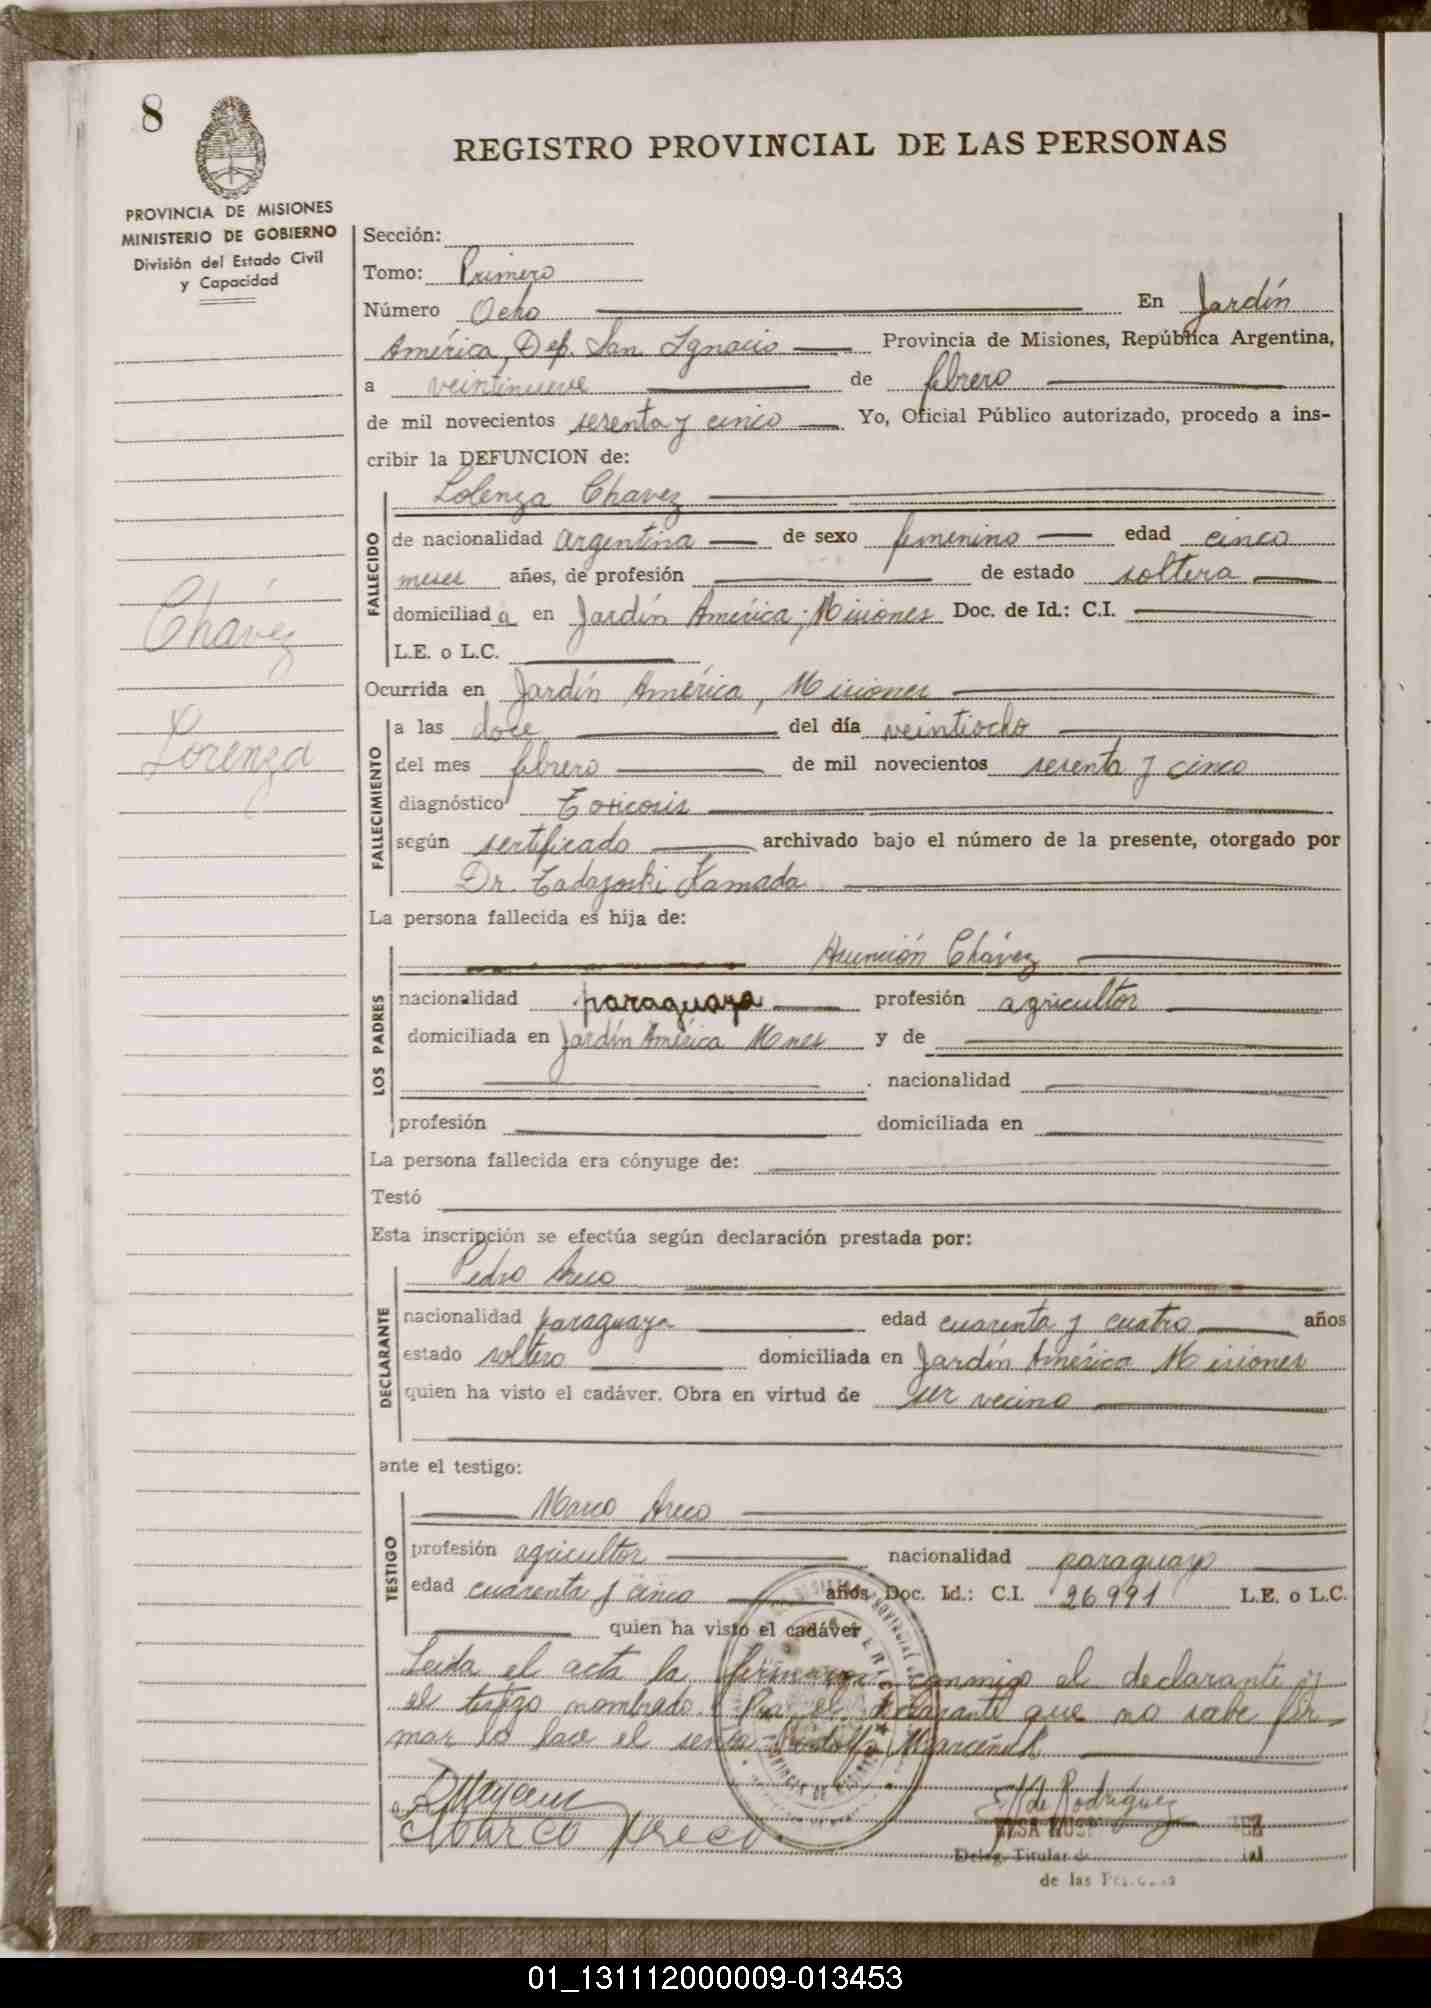 8
REGISTRO PROVINCIAL DE LAS PERSONAS
PROVINCIA DE MISIONES
MINISTERIO DE GOBIERNO
División del Estado Civil
y Capacidad
Sección:
Tomo: Primero
Número Ocho En Jardín
América, Dep. San Ignacio Provincia de Misiones, República Argentina,
a veintinueve de febrero
de mil novecientos sesenta y cinco Yo, Oficial Público autorizado, procedo a ins-
cribir la DEFUNCION de:
Lolenza Chavez
FALLECIDO
de nacionalidad argentina de sexo femenino edad cinco
meses años, de profesión de estado soltera
domiciliad a en Jardín América, Misiones Doc. de Id.: C.I.
L.E. o L.C.
Chávez
Lorenza
Ocurrida en Jardín América, Misiones
FALLECIMIENTO
a las doce del día veintiocho
del mes febrero de mil novecientos sesenta y cinco
diagnóstico Toxicosis
según sertificado archivado bajo el número de la presente, otorgado por
Dr. Tadayoski Kamada
La persona fallecida es hija de:
LOS PADRES
Asunción Chávez
nacionalidad paraguaya profesión agricultor
domiciliada en Jardín América Mnes y de
nacionalidad
profesión domiciliada en
La persona fallecida era cónyuge de:
Testó
Esta inscripción se efectúa según declaración prestada por:
DECLARANTE
Pedro Areco
nacionalidad paraguaya edad cuarenta y cuatro años
estado soltero domiciliada en Jardín América Misiones
quien ha visto el cadáver. Obra en virtud de ser vecino
ante el testigo:
TESTIGO
Marco Areco
profesión agricultor nacionalidad paraguayo
edad cuarenta y cinco años Doc. Id.: C.I. 26991 L.E. o L.C.
quien ha visto el cadáver
Leida el acta la firman conmigo el declarante y
el testigo nombrado. Por el declarante que no sabe fir-
mar lo hace el señor Rodolfo
Marco Areco
E. H. de Rodríguez
Deleg. Titular
de las
01_131112000009-013453